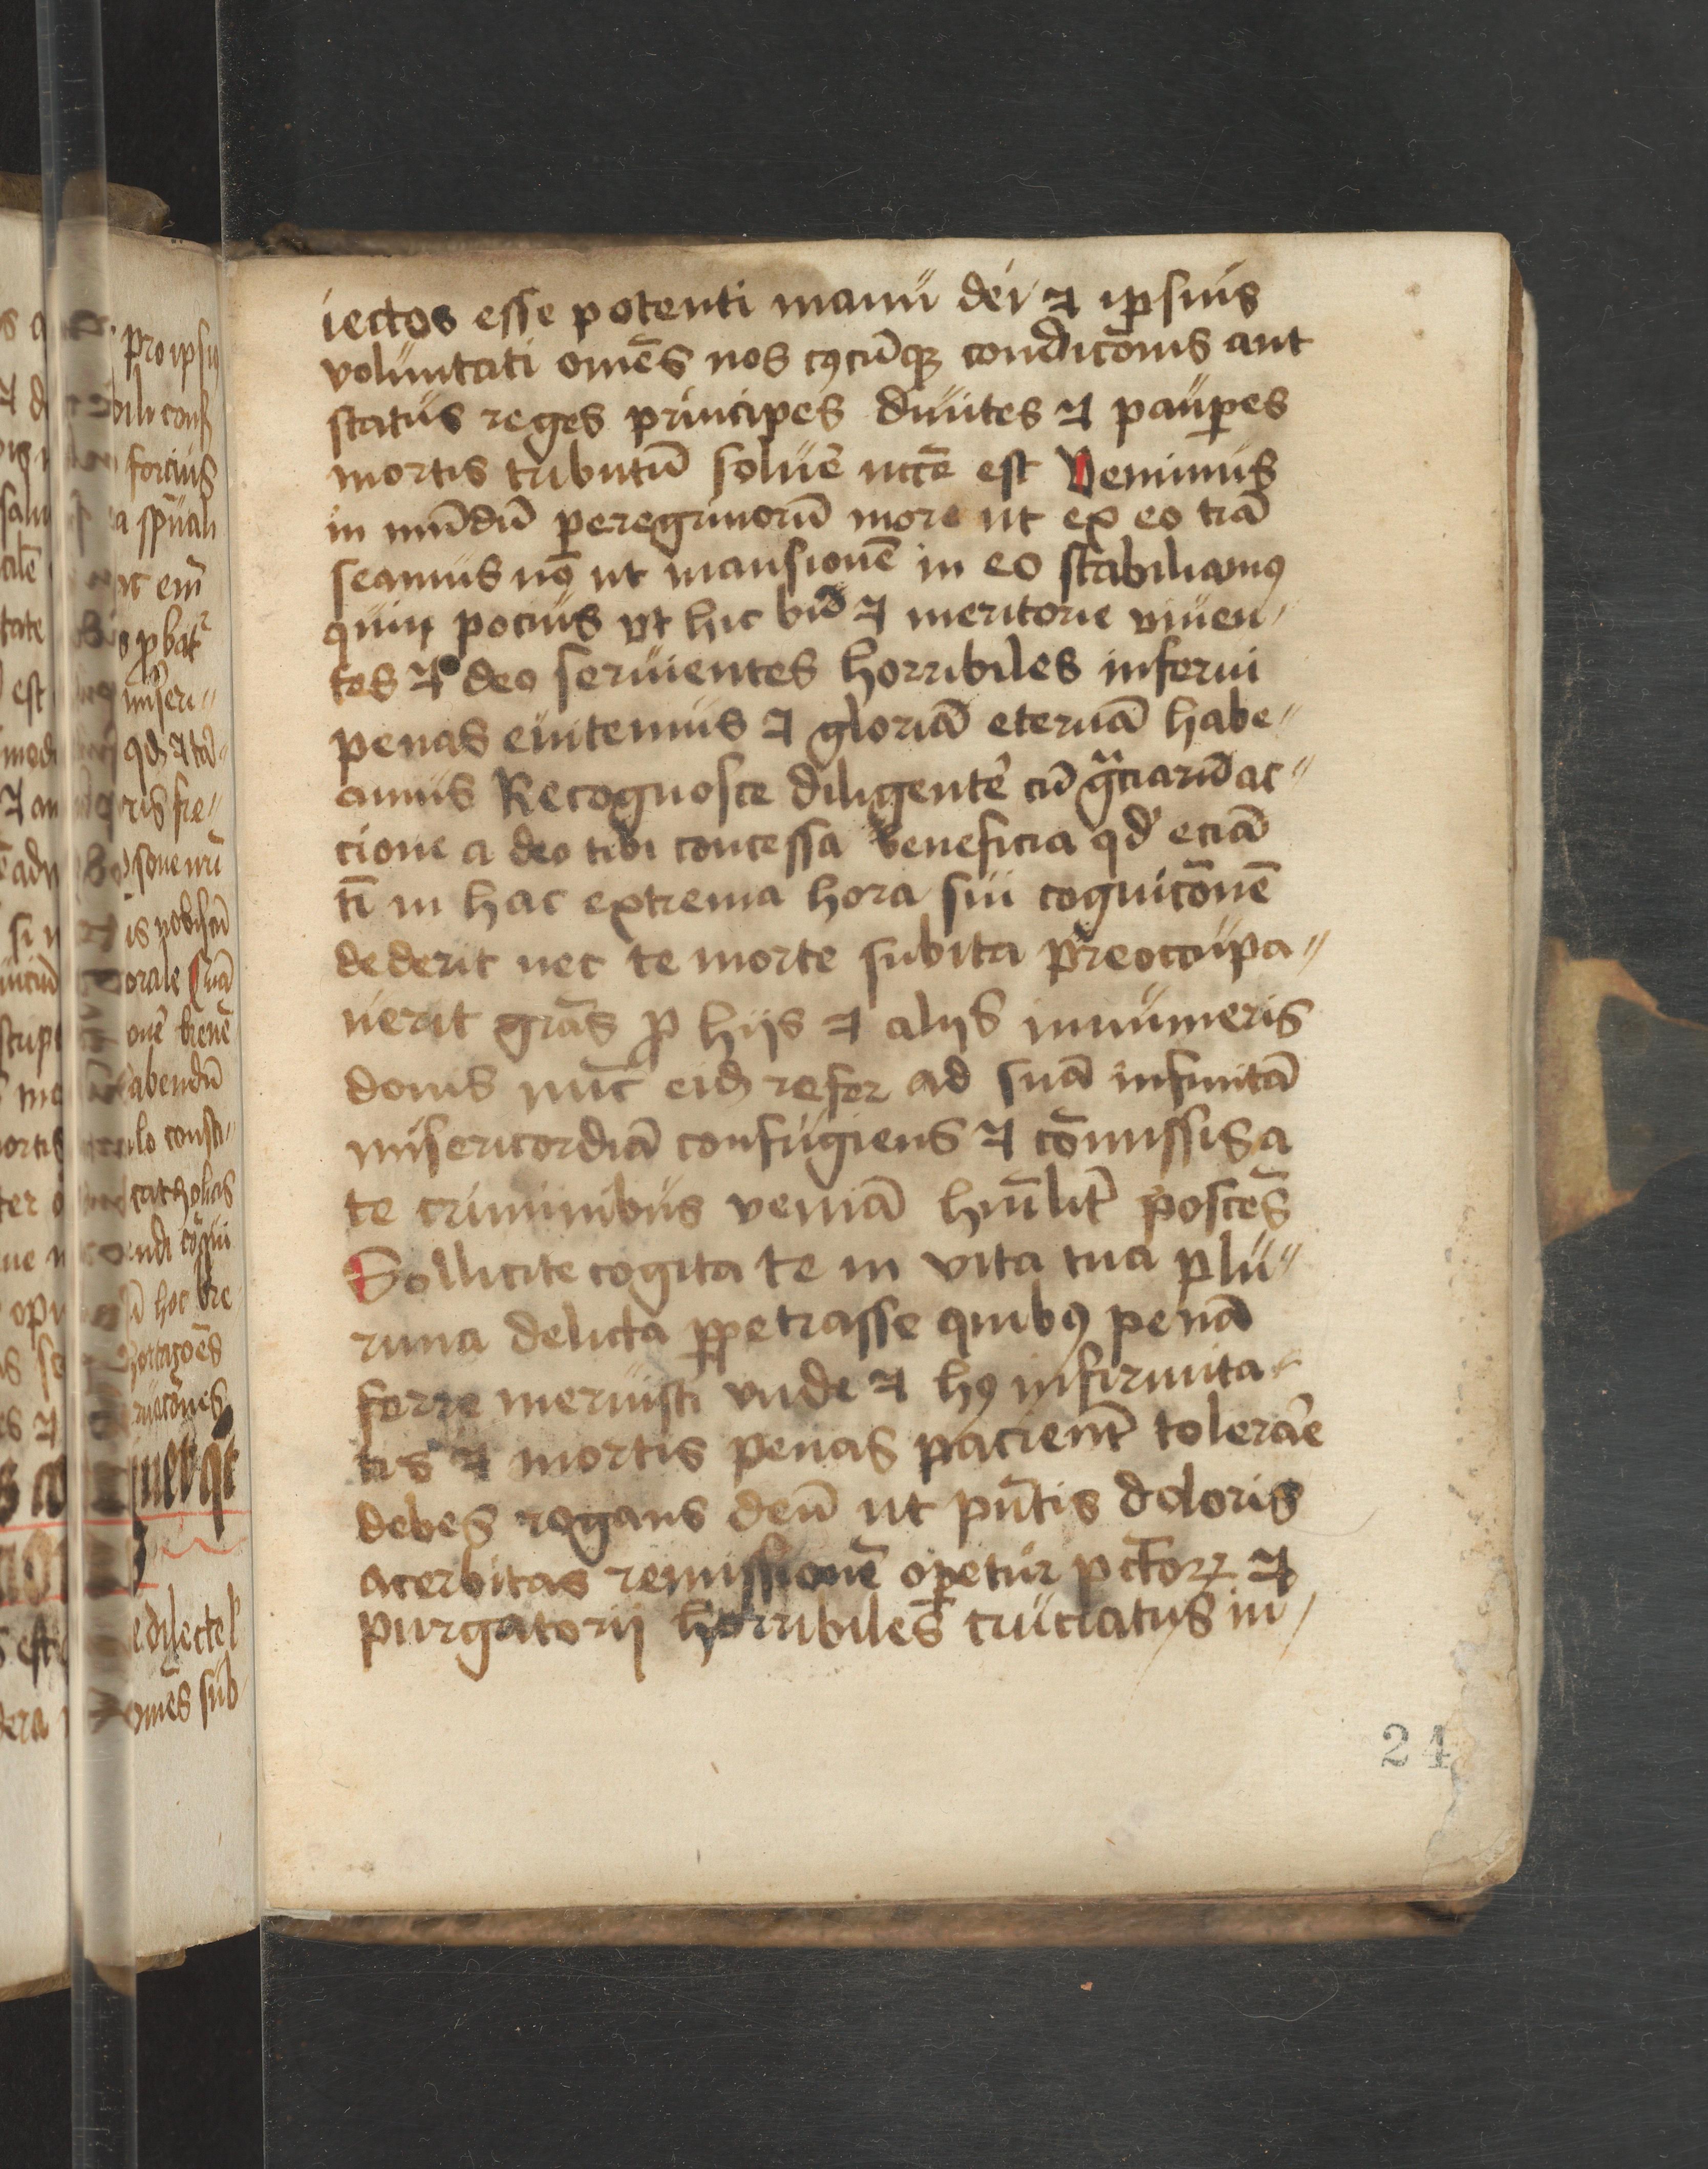 iectos esse potenti manu dei ⁊ ip̱sius
voluntati om̄es nos cꝰcūqꝫ condicōnis aut
status reges principes diuites ⁊ pauꝑes
mortis tributū soluē ncc̄e est Venimus
in mūdū peregrinorū more ut ex eo trā
seamus nō ut mansionē in eo stabiliamꝰ
quin pocius vt hic bn̄ ⁊ meritorie viuen
tes ⁊ deo seruientes horribiles inferni
penas euitemus ⁊ gloriā eternā habe〃
amus Recognosce diligentē cū gr̄aciarū ac〃
cione a deo tibi concessa beneficia qd' eciā
tī in hac extrema hora sui cognicōnē
dederit nec te morte subita preoccupa〃
uerit grās ꝓ hijs ⁊ alijs innumeris
donis nūc eidꝫ refer ad suā infinitā
misericordiā confugiens ⁊ cōmissis a
te criminibus veniā hūiliṫ poscēs
Sollicite cogita te in vita tua plu〃
rima delicta ꝑpetrasse quibꝰ penā
ferre meruisti vnde ⁊ hꝰ infirmita
tis ⁊ mortis penas pacienṫ tolerāe
debes rogans deū ut pn̄tis doloris
acerbitas remissionē oꝑetur pctōrꝫ ⁊
purgatorij horribiles cruciatus in
24